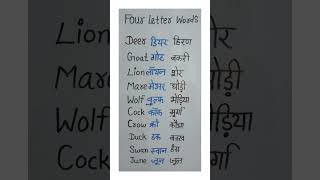 Four Letter Words
Deer डियर हिरण
Goat गोट बकरी
Lion लॉयन शेर
Mare मेअर घोड़ी
Wolf वुल्फ भेड़िया
Cock कॉक मुर्गा
Crow क्रो कौआ
Duck डक बत्तख
Swan स्वान हंस
June जून जून